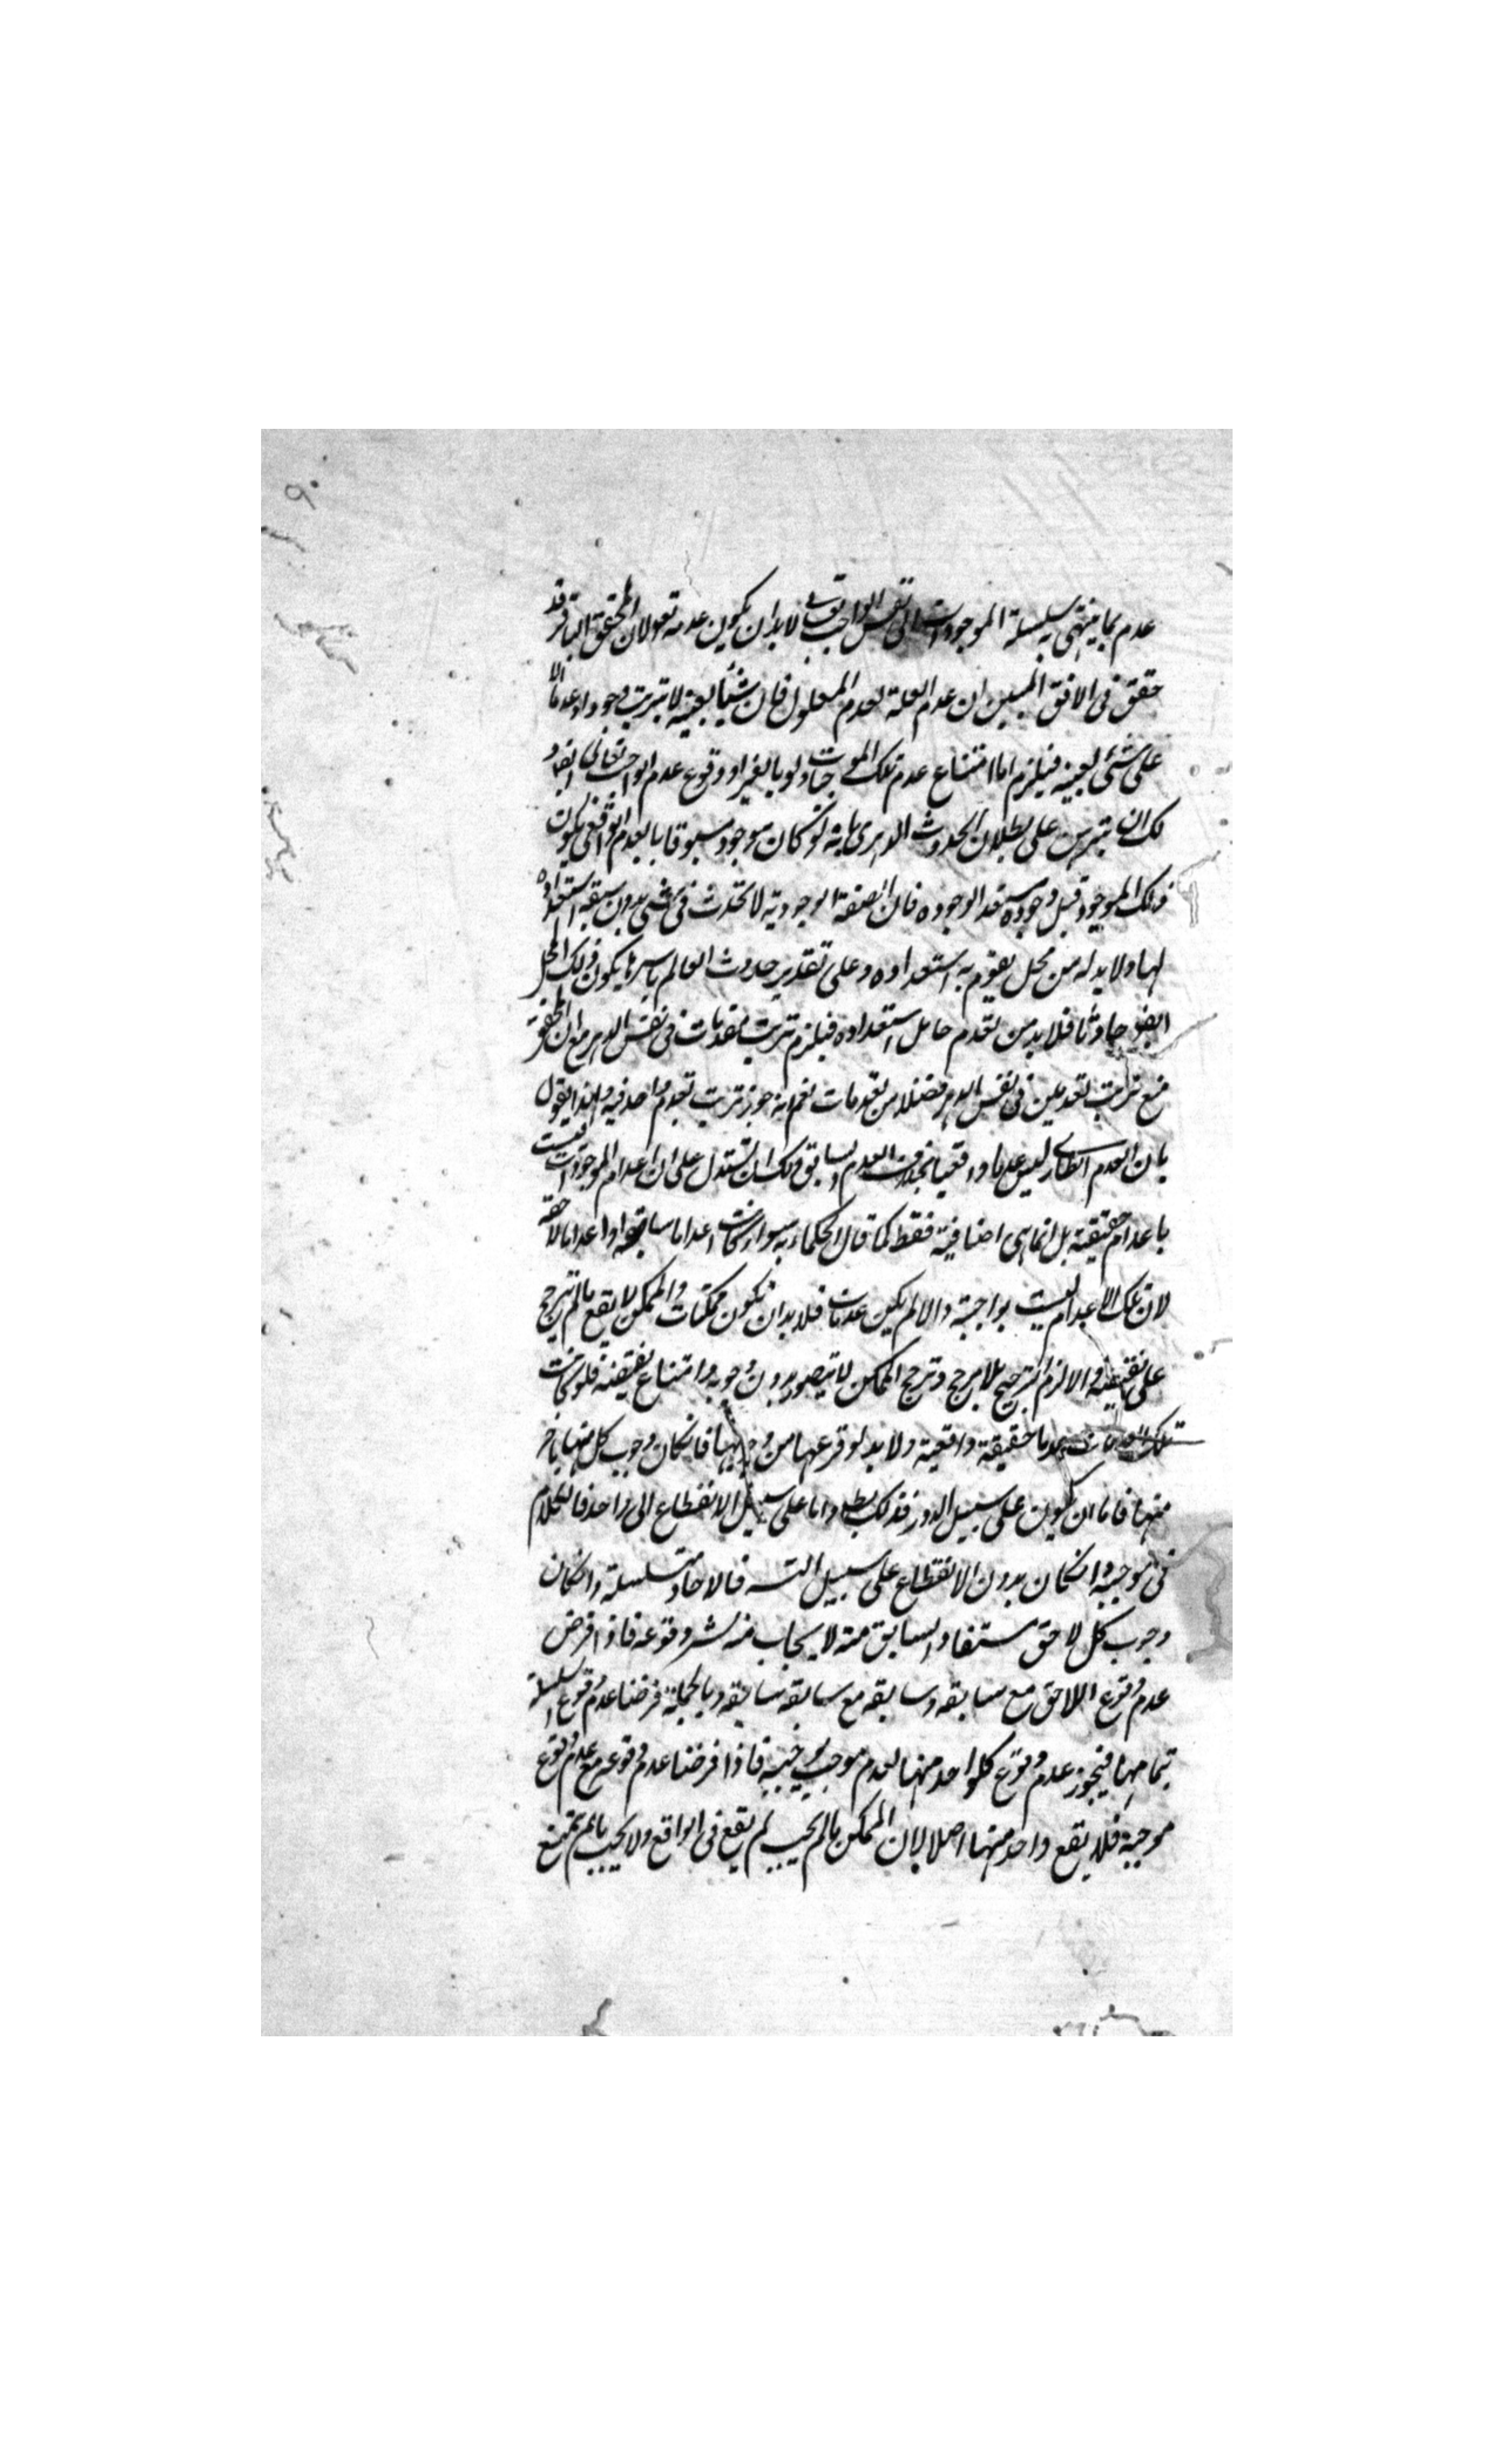 عدم بما ينتهى به سلسلة الموجودات الى نفس الواجب تعالى لابد ان يكون عدمه تعو لان المحقق الباقر قد
حقق فى الافق المبين ان عدم العلة لعدم المعلول فان شيئا بعينه لا يترتب وجودا وعدما الا
على شئ بعينه فيلزم اما امتناع عدم تلك الموجبات ولو بالغير او وقوع عدم الواجب تعالى ايضو
لك ان تبرهن على بطلان الحدوث الدهرى بانه لو كان موجود مسبوقا بالعدم الواقعى يكون
ذلك الموجود قبل وجوده مستعد الوجوده فان الصفة الوجودية لا تحدث فى شئ بدون سبقه استعداده
لها ولابد له من محل يقوم به استعداده وعلى تقدير حدوث العالم باسرها يكون ذلك المحل
ايضو حادثا فلابد من تقدم حامل استعداده فيلزم ترتب تقدمات فى نفس الدهر مع ان المحقق
منع ترتب تقدمين فى نفس الدهر فضلا من تقدمات نعم انه جوز ترتب تقدم واحد فيه ولهذا يقول
بان العدم الطارى ليس عدما واقعيا بخلاف العدم السابق ولك ان تستدل على ان اعدام الموجودات ليست
باعدام حقيقية بل انما هى اضافية فقط كما قال الحكماء به سواء كانت اعداما سابقة او اعداما لاحقة
لان تلك الاعدام ليست بواجبة والا لم يكن عدمات فلابد ان تكون ممكنات والممكن لا يقع ما لم يترجح
على نقيضه والا لزم الترجيح بلا مرجح وترجح الممكن لا يتصور بدون وجوبه وامتناع نقيضه فلو كانت
تلك العدمات عدما حقيقية واقعية ولابد لوقوعها من وجوبها فان كان وجوب كل منها باخر
منها فاما ان يكون على سبيل الدور فذلك بطل واما على سبيل الانقطاع الى واحد فالكلام
فى موجبه وان كان بدون الانقطاع على سبيل التسـ فالاحاد متسلسلة وان كان
وجوب كل لاحق مستفاد السابق منه لا يجاب وقوعه فاذا فرض
عدم وقوع اللاحق مع سابقه وسابقه مع سابقه سابقه وبالجملة فرضنا عدم وقوع السلسلة
بتمامها فيجوز عدم وقوع كل واحد منها لعدم موجب يوجبه فاذا فرضنا عدم وقوعه مع عدم وقوع
موجبه فلا يقع واحد منها اصلا لان الممكن ما لم يجب لم يقع فى الواقع ولا يجب ما لم يمتنع